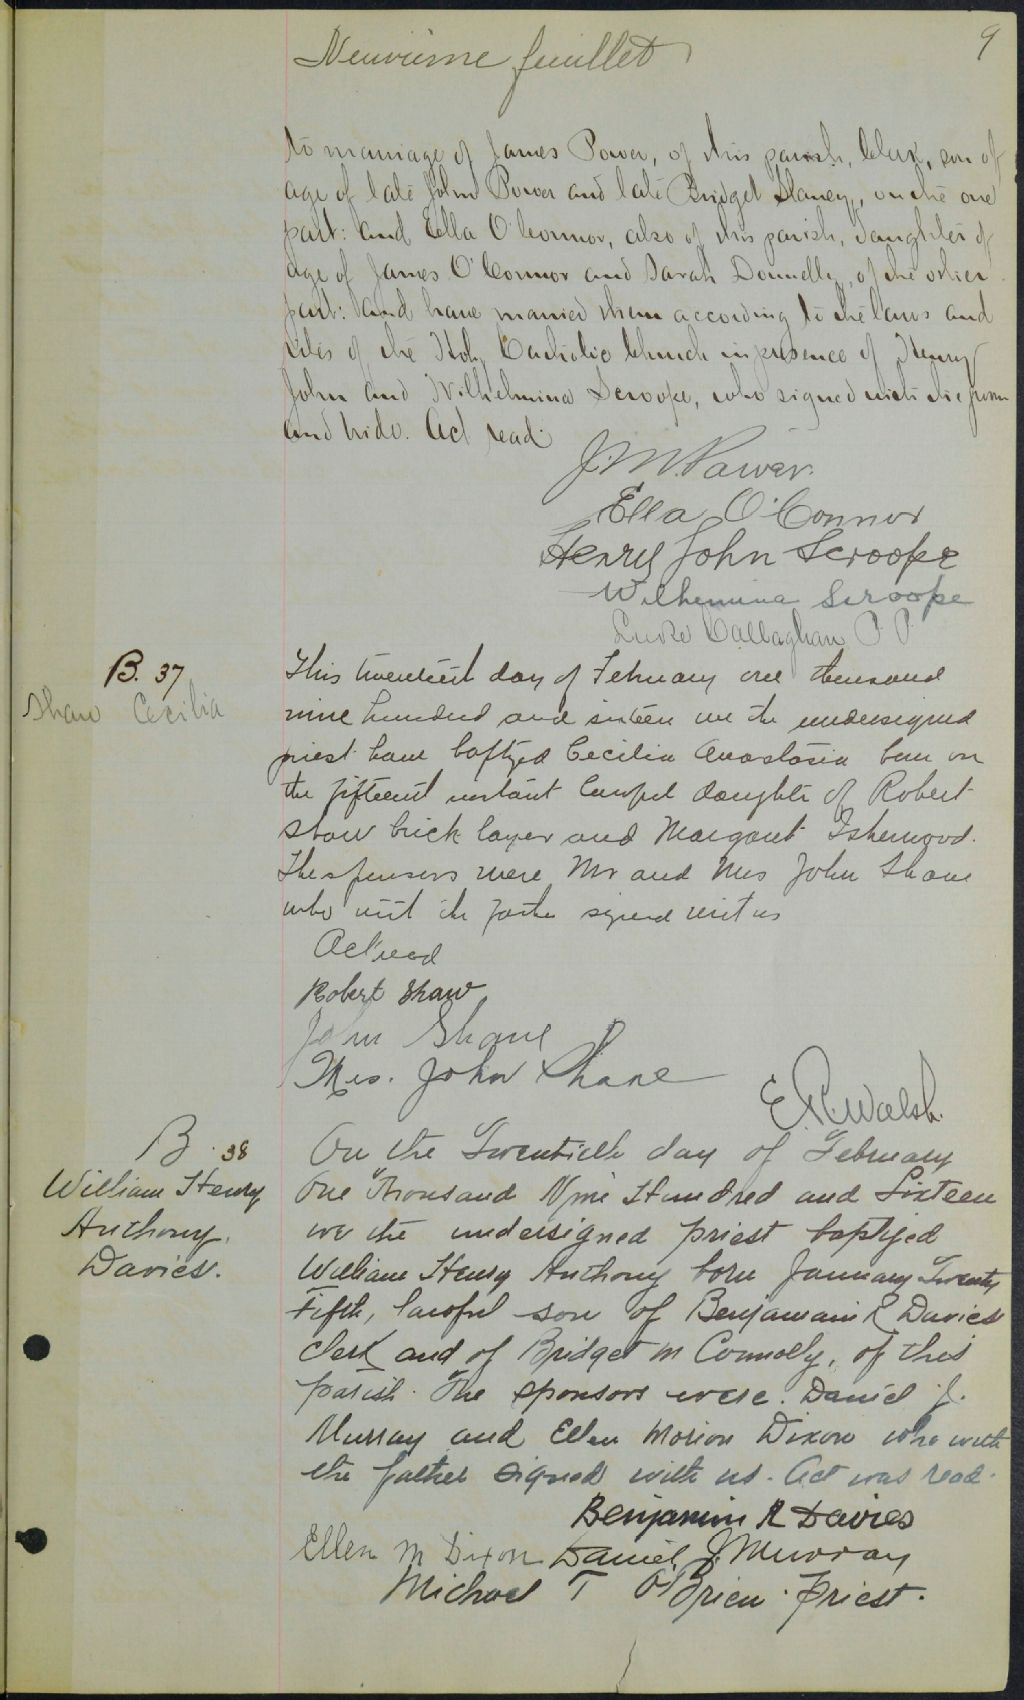 9
Neuvième feuillet
to marriage of James Power, of this parish, Clerk, son of
age of late John Power and late Bridget Slaney, on the one
part: and Ella O'Connor, also of this parish, daughter of
age of James O'Connor and Sarah Donnelly, of the other
part: and have married them according to the laws and
rites of the Holy Catholic Church in presence of Henry
John and Wilhelmina Scroope, who signed with the groom
and bride. Act read
J. M. Power.
Ella O'Connor
Henry John Scroope
Wilhemina Scroope
Luke Callaghan P.P.
B. 37
Shaw Cecilia
This twentieth day of February one thousand
nine hundred and sixteen we the undersigned
priest have baptized Cecilia Anastasia born on
the fifteenth instant lawful daughter of Robert
Shaw brick layer and Margaret Isherwood.
The sponsors were Mr and Mrs John Shane
who with the father signed with us
Act read
Robert Shaw
John Shane
Mrs. John Shane
Walsh.
B. 38
William Henry
Anthony,
Davies.
On the Twentieth day of February
One Thousand Nine Hundred and Sixteen
we the undersigned priest baptized
William Henry Anthony born January Twenty
Fifth, lawful son of Benjamain R Davies
clerk and of Bridget M Connolly, of this
parish. The sponsors were. Daniel J.
Murray and Ellen Marion Dixon who with
the father signed with us. Act was read.
Benjamin R Davies
Ellen M Dixon Daniel J. Murray
Michael T O'Brien. Priest.